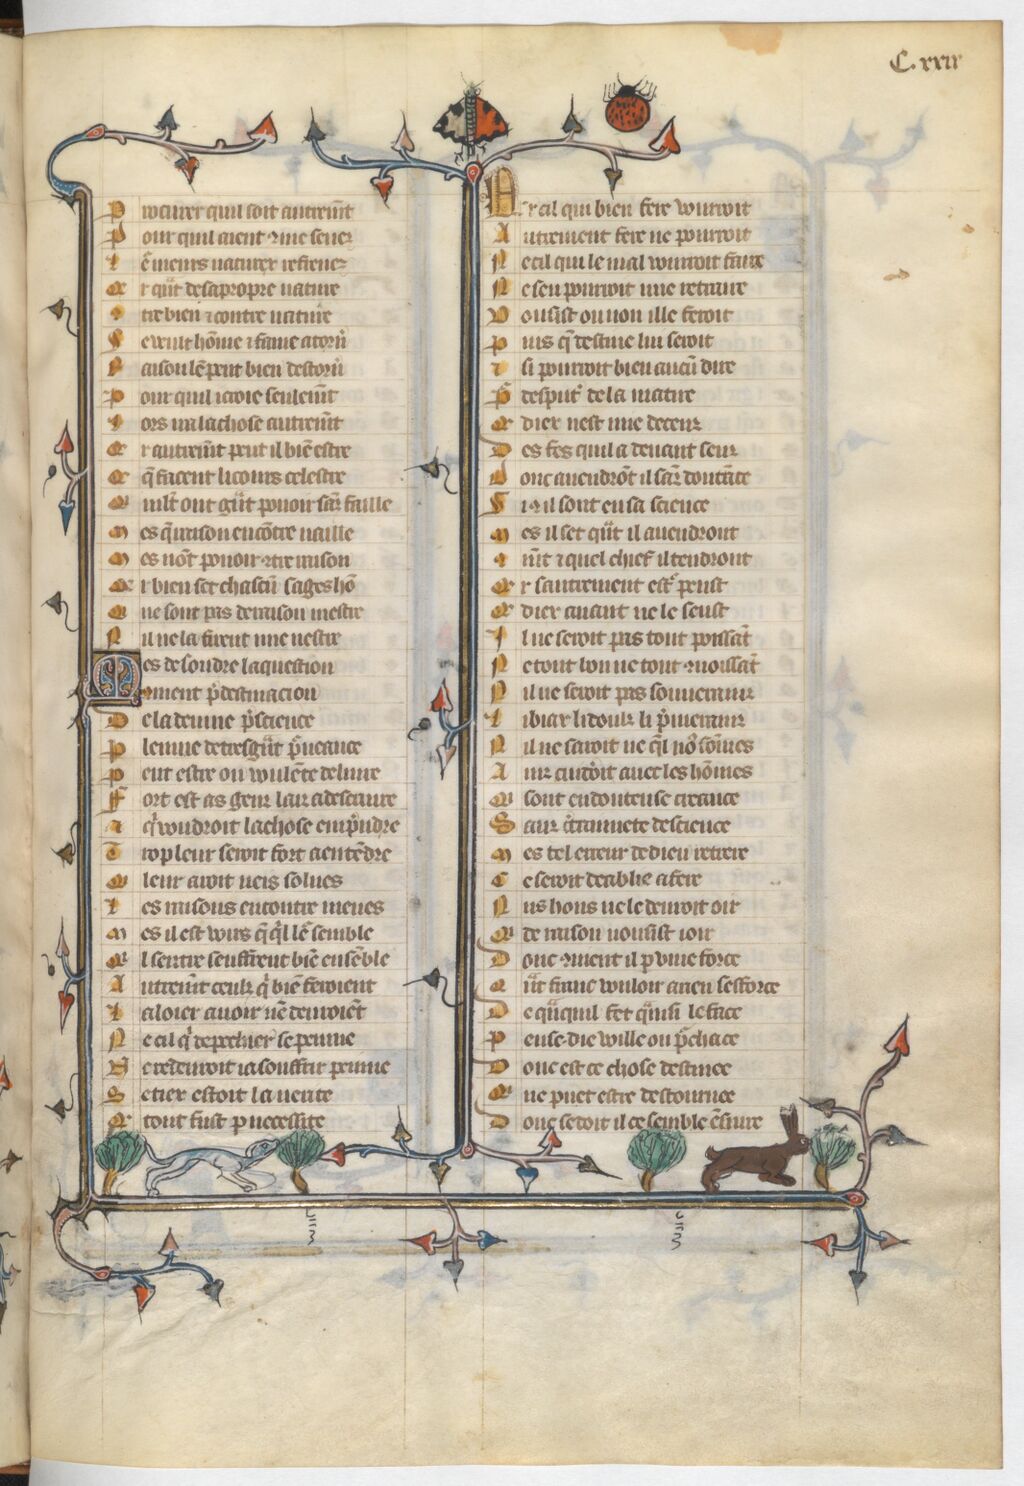 C. xxix
P rocurer quil soit autremt
P our quil aient ⁊ me sener
L ē meurs naturex refrener
C r qͥt de sa propre nature
tre bien ⁊ contre nature
S e vuit hōme ⁊ fame atorn̄
R aison lē peut bien destorn̄
P our quil i croie seulemt
L ors ira la chose autremt
C r autremt peut il biē estre
C q̄ facent li cours celestre
M lt ont gͣnt pouoir sāz faille
M es q̄ raison encōtre naille
M es nōt pouoir ⁊tre raison
C r bien set chascū sages hō
Q ue sont pas de raison mestre
N il ne la firent mie nestre
M es de soudre la question
⁊ment p̄destinacion
D e la devine p̄science
P lenne de tres gͣnt p̄veance
P eut estre ou voulēte delivre
F ort est as genz lais a descrivre
q̄ voudroit la chose emp̄ndre
T rop leur seroit fort a entēdre
Q leur auroit neis solues
L es raisons encontre meues
M es il est voirs q̄ q̄l lē semble
Q l sentre seuffrent biē ensēble
A utremt ceulz q̄ biē feroient
L a loier avoir nē devroiēt
N e cil q̄ de pechier se peinne
N e devroit ia souffrir peinne
S e tiex estoit la verite
Q tout fust p necessite
C ar cil qui bien fere vourroit
A utrement fere ne pourroit
N e cil qui le mal vourroit faire
N e sen pourroit mie retraire
V ousist ou non il le feroit
P uis q̄ destine lui seroit
⁊ si pourroit bien aucū dire
P desput̄ de la matire
Q dieu nest mie deceuz
D es fes quil a devant seuz
D onc avendrōt il sāz doutāce
S i q̄ il sont en sa science
M es il set qͣnt il avendront
⁊ mt ⁊ quel chief il tendront
C r sautrement estr̄ peust
Q dieu avant ne le seust
I l ne seroit pas tout poissāt
N e tout bon ne tout ⁊noissāt
N il ne seroit pas souverains
L i biax li doulz li p̄merains
N il ne saroit ne q̄l nō sōmes
A inz cuidoit avec les hōmes
Q sont en douteuse creance
S anz c̄tainnete de science
M es tel erreur de dieu retrere
C e seroit deablie a fere
N us hons ne le devroit oir
Q de raison vousist ioir
D onc ⁊vient il p vive force
Q nt franc vouloir a rien sesforce
D e quͣquil fet q̄insi le face
P ense die vuille ou p̄chace
D onc est ce chose destinee
Q ue puet estre destournee
D onc se doit il ce semble ēsivre